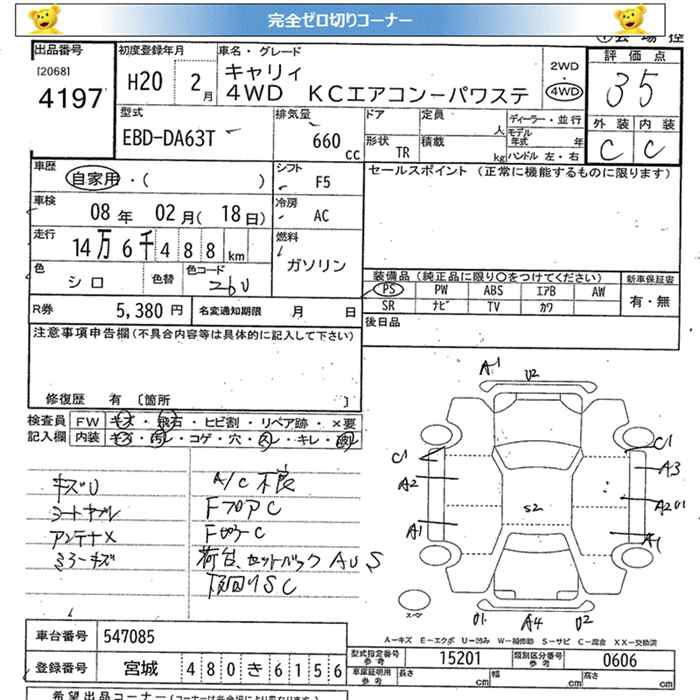 完全ゼロ切りコーナー
出品番号
[2068]
4197
初度登録年月
H20 2月
車名・グレード
キャリィ
4WD KCエアコンーパワステ
2WD
・
4WD
評価点
35
外装 内装
C C
型式
EBD-DA63T
排気量
660
cc
ドア
定員
人
形状
TR
積載
kg
ディーラー・並行
モデル年式 年
ハンドル 左・右
車歴
自家用・( )
シフト
F5
セールスポイント(正常に機能するものに限ります)
車検
08年 02月(18日)
冷房
AC
走行
14万6千488km
燃料
ガソリン
色
シロ
色替
色コード
26U
装備品(純正品に限り○をつけてください)
PS PW ABS エアB AW
SR ナビ TV カワ
新車保証書
有・無
R券
5,380円
名変通知期限 月 日
後日品
注意事項申告欄(不具合内容等は具体的に記入して下さい)
修復歴 有 [箇所 ]
検査員
記入欄
FW キズ・飛石・ヒビ割・リペア跡・×要
内装 キズ・汚レ・コゲ・穴・スレ・キレ・破レ
キズU
シートヤブレ
アンテナ×
ミラーキズ
A/C不良
FフロアC
荷台、セットバックAUS
下回りSC
A1
U2
C1
A2
A1
S2
C1
A3
A2U1
A1
スペア
U1
A4
U2
A-キズ E-エクボ U-凹み W-補修跡 S-サビ C-腐食 XX-交換済
車台番号
547085
登録番号
宮城 480き6156
型式指定番号
参考
15201
類別区分番号
参考
0606
車庫証明用
参考
長さ
cm
幅
cm
高さ
cm
希望出品コーナー